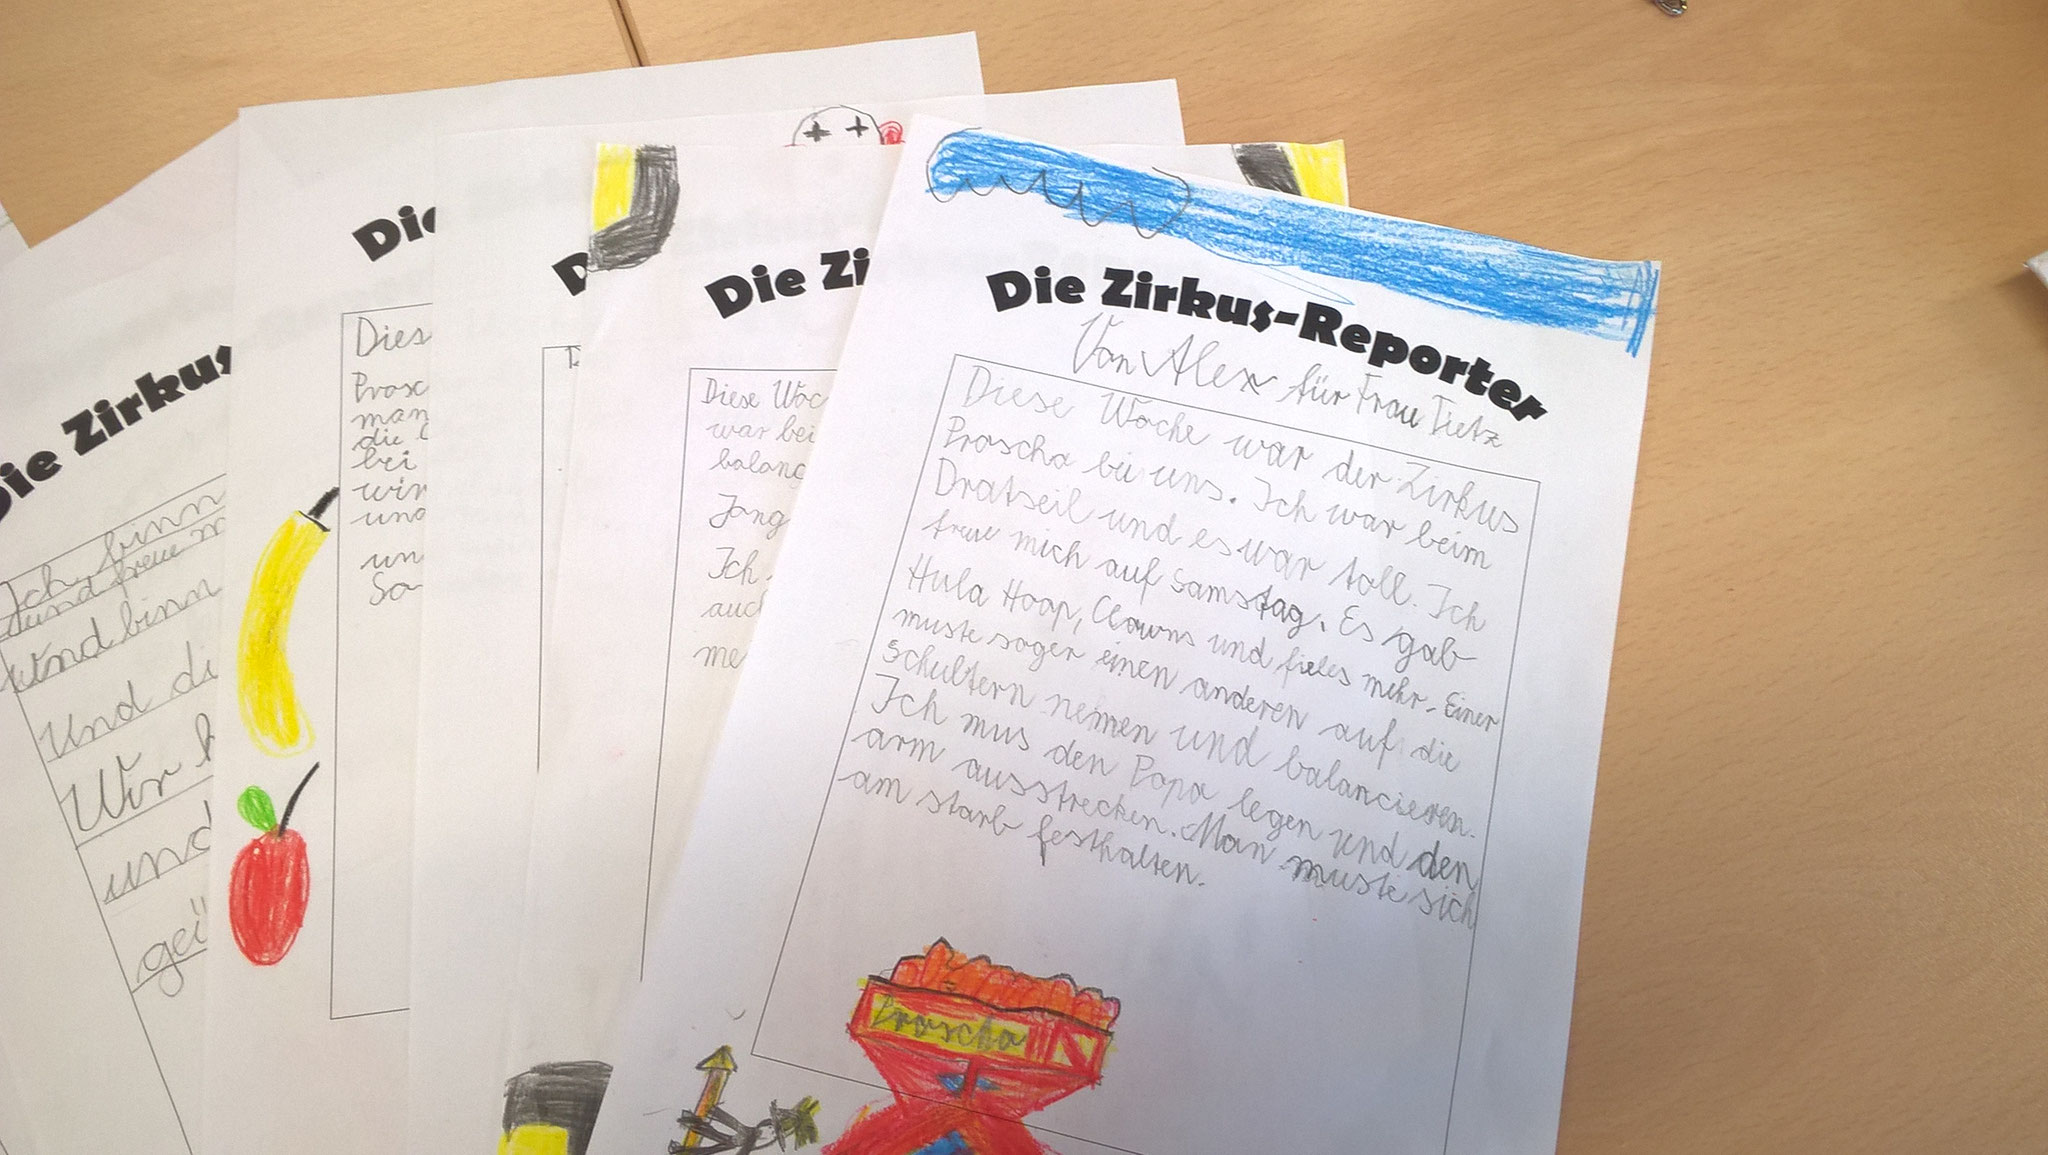 Die Zirkus
Ich binn
und freue m
Und binn
Und di
Wir
und
Die
Dies
Prosc
man
die
bei
wir
und
un
Sa
D
Die Zi
Diese Woc
war bei
balanc
Jong
Ich
auch
me
Die Zirkus-Reporter
Von Alex für Frau Tietz
Diese Woche war der Zirkus
Proscho bei uns. Ich war beim
Dratseil und es war toll. Ich
freue mich auf Samstag. Es gab
Hula Hoop, Clowns und fieles mehr. Einer
muste soger einen anderen auf die
schultern nemen und balancieren.
Ich mus den Popo legen und den
arm ausstrecken. Man muste sich
am starb festhalten.
Proscho